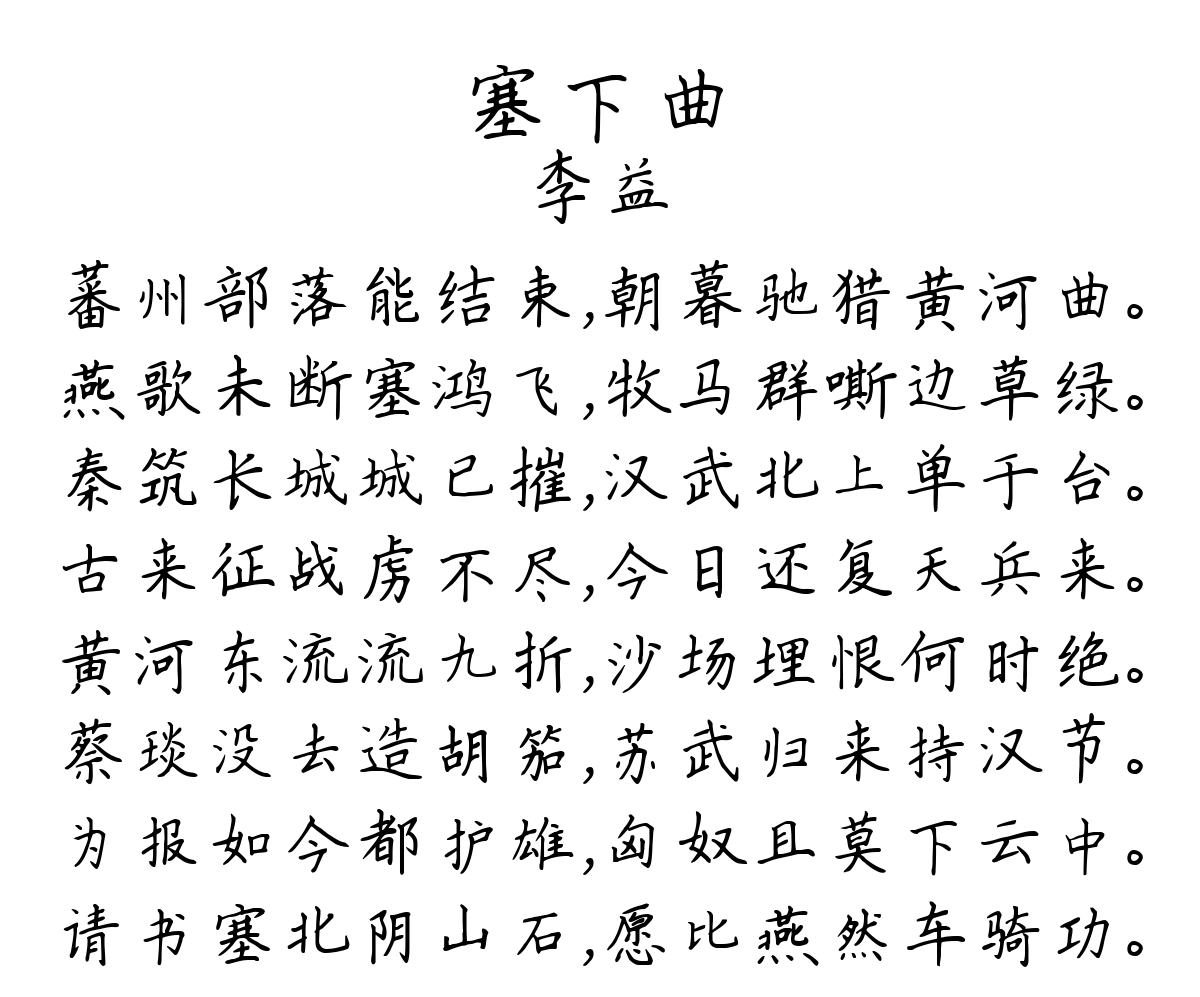 塞下曲
李益
蕃州部落能结束,朝暮驰猎黄河曲。
燕歌未断塞鸿飞,牧马群嘶边草绿。
秦筑长城城已摧,汉武北上单于台。
古来征战虏不尽,今日还复天兵来。
黄河东流流九折,沙场埋恨何时绝。
蔡琰没去造胡笳,苏武归来持汉节。
为报如今都护雄,匈奴且莫下云中。
请书塞北阴山石,愿比燕然车骑功。